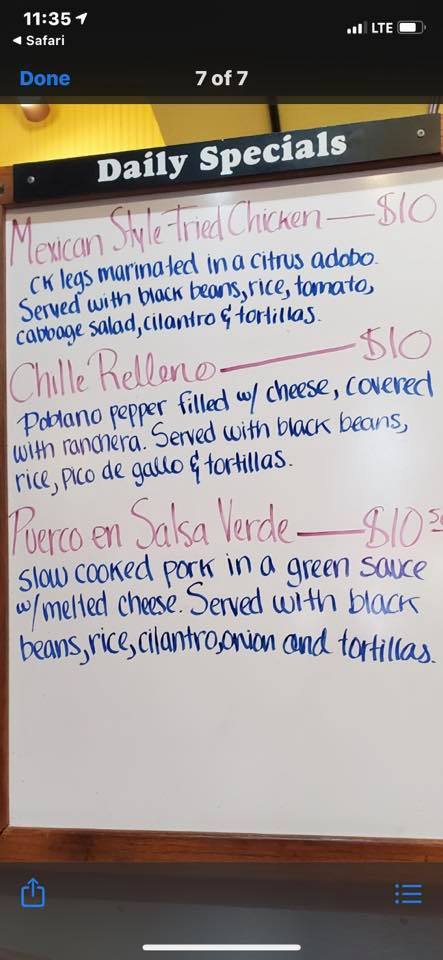 11:35
LTE
Safari
Done
7 of 7
Daily Specials
Mexican Style Fried Chicken — $10
CK legs marinated in a citrus adobo.
Served with black beans, rice, tomato,
cabbage salad, cilantro & tortillas.
Chille Relleno — $10
Poblano pepper filled w/ cheese, covered
with ranchera. Served with black beans,
rice, pico de gallo & tortillas.
Puerco en Salsa Verde — $10 50
slow cooked pork in a green sauce
w/ melted cheese. Served with black
beans, rice, cilantro, onion and tortillas.